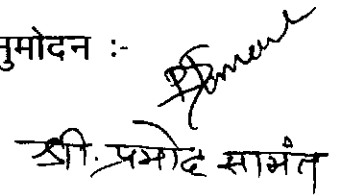 नुमोदन :-
श्री. प्रमोद सामंत